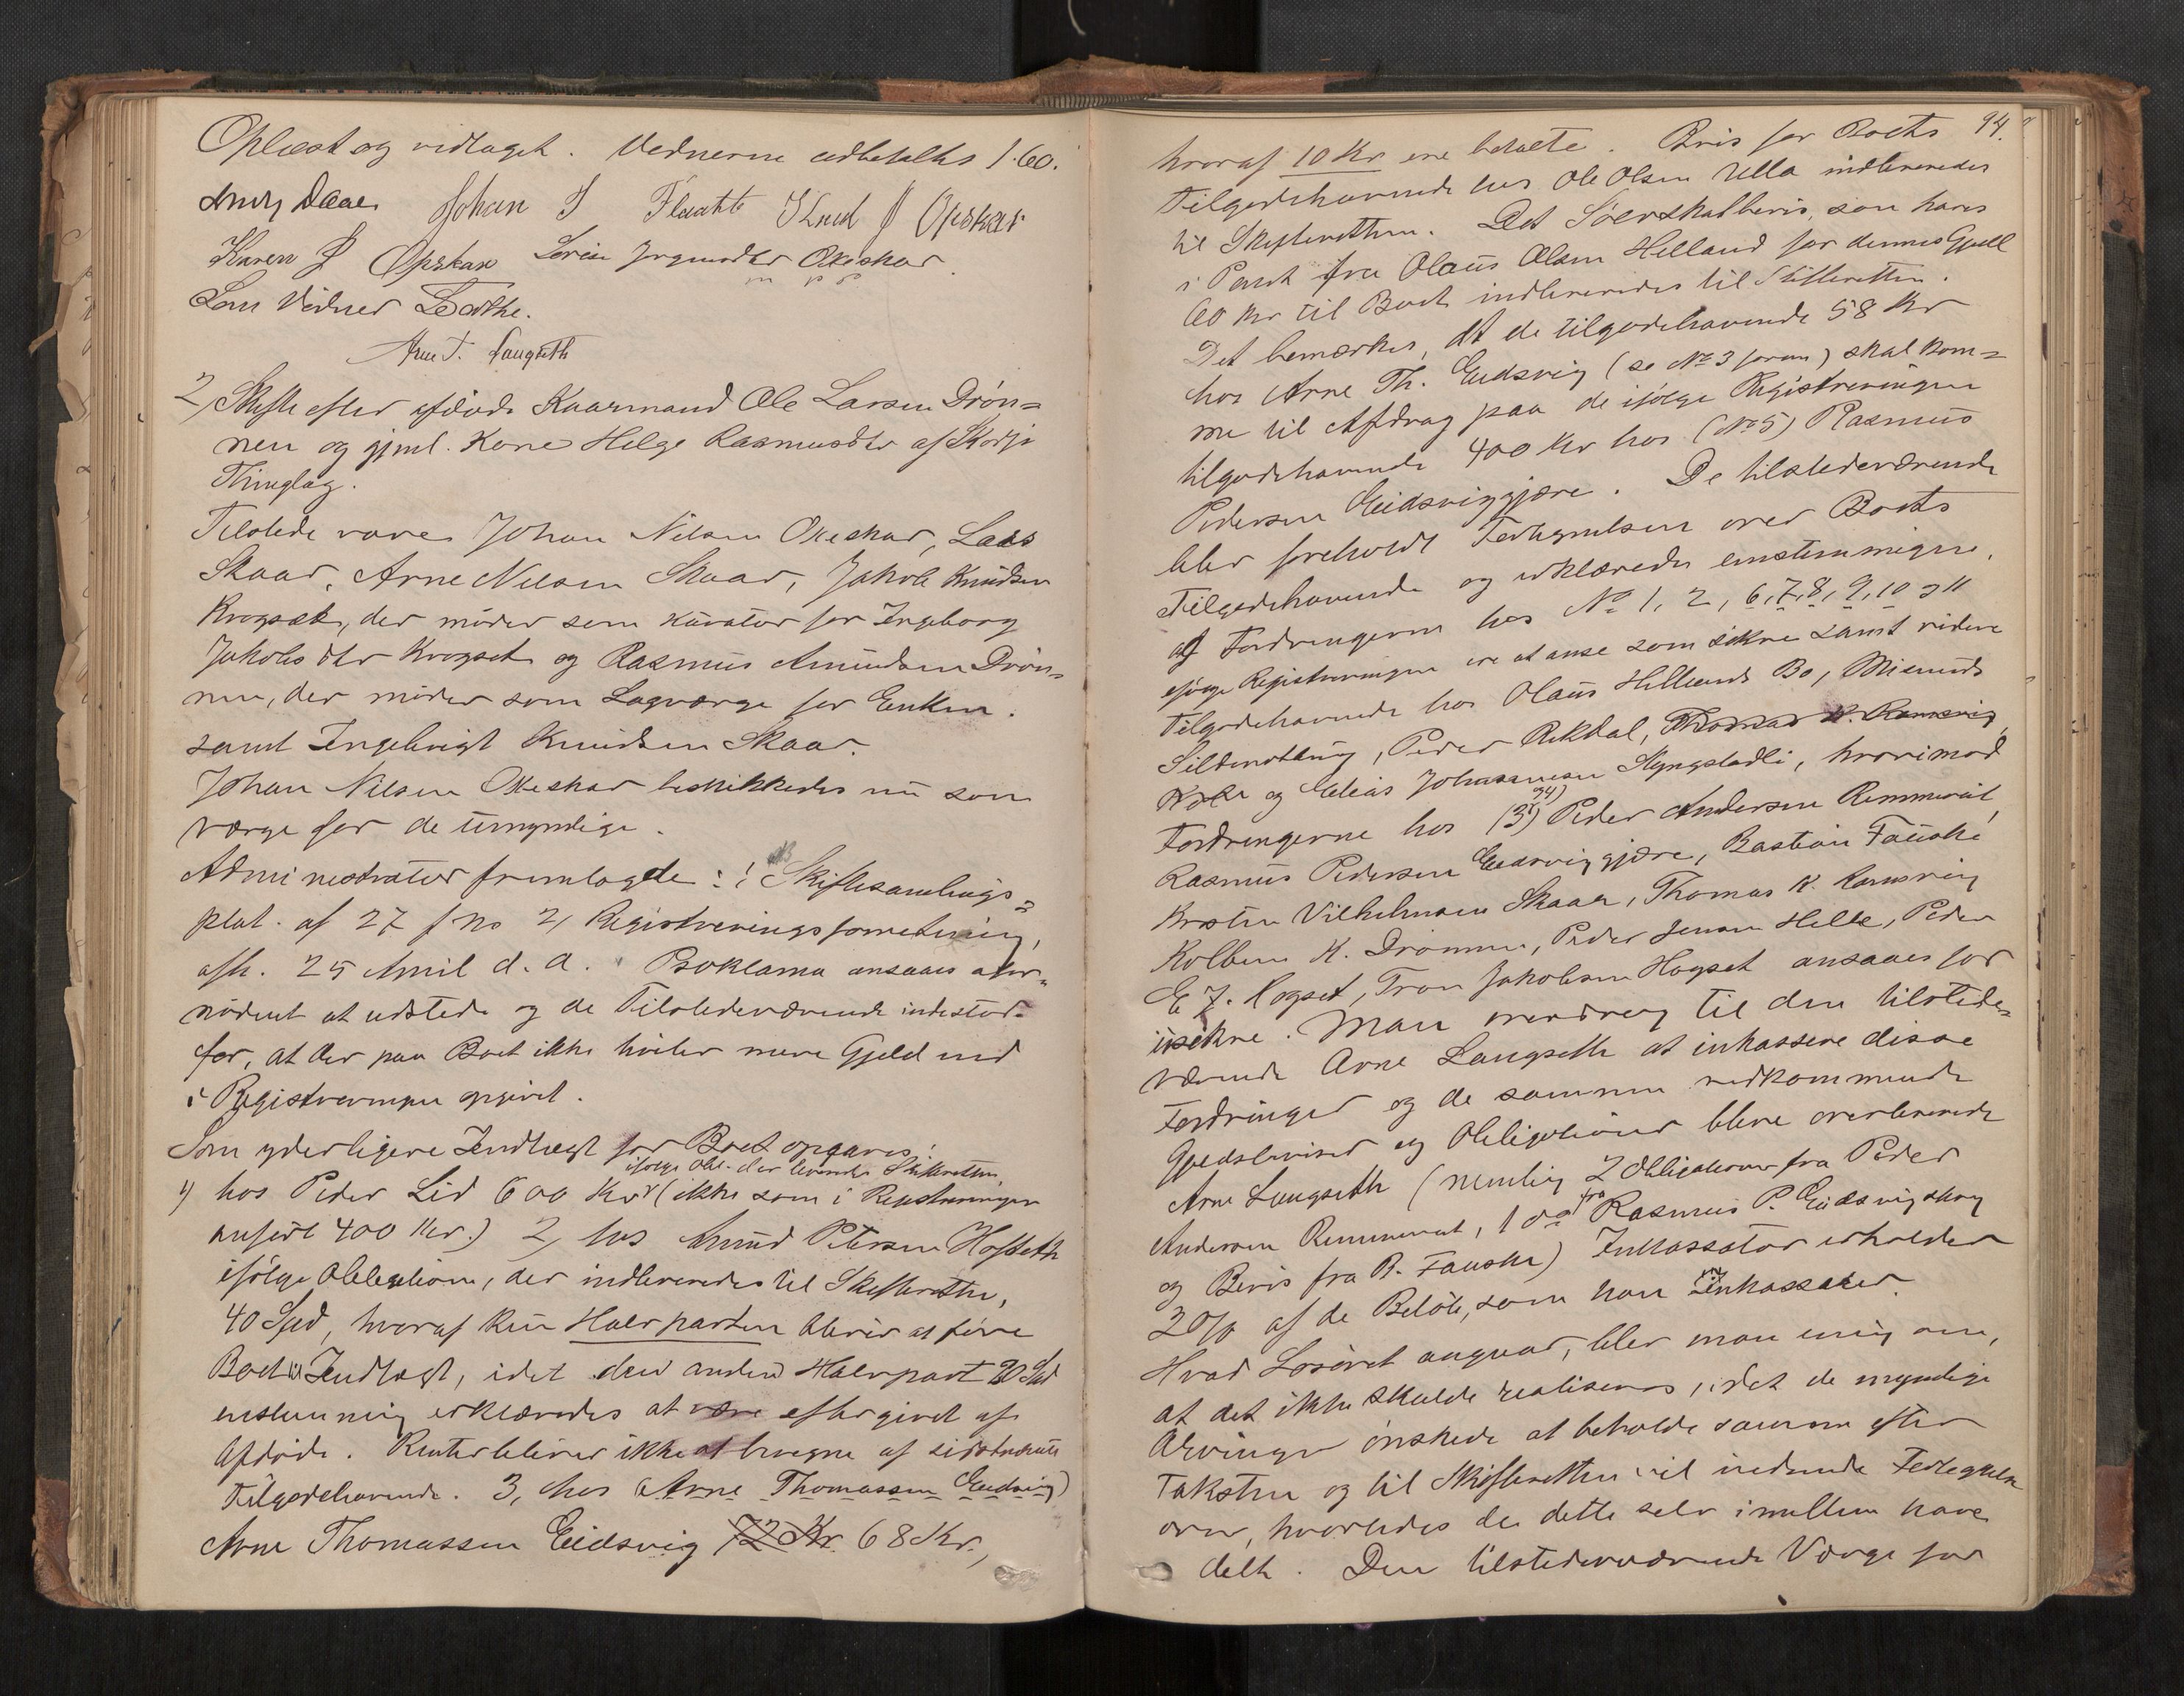 Oplæst og vedtaget. Vidnerne udbetaltes 1.60.
Johan J Flaathe K Lnd J Opskar
Karen J Opskar Okeskar
Som Vidner
Arne T. Langseth
2, Skifte efter afdøde Kaarmand Ole Larsen Drøn=
nen og gjenl. Kone Helge Rasmusdtr af Skodje
Thinglag.
Tilstede vare Johan Nilsen Okeskar, Lars
Skaar, Arne Nilsen Skaar, Jakob Knudsen
Krogset, der møder som kurator for Ingeborg
Jakobsdtr Krogset og Rasmus Amundsen Drøn=
nen, der møder som Lagværge for Enken.
samt Ingebrigt Knudsen Skaar.
Johan Nilsen Okeskar beskikkedes nu som
værge for de umyndige.
Administrator fremlagde: 1 Skiftesamlings=
plat. af 27 f. Ms 2, Registreringsforretning,
afh. 25 April d. A. Proklama ansaaes ufor=
nødent at udstede og de Tilstedeværende indestod
for, at der paa Boet ikke hviler mere Gjeld end
i Registreringen opgivet.
Som yderligere Indtægt for Boet opgaves:
ifølge Obl. der leveredes Skifteretten,
1) hos Peder Lid 600 Kr (ikke som i Registreringen
anført 400 Kr.) 2, hos Amund Petersen Hofseth
ifølge Obligation, der indleveredes til Skifteretten,
40 Spd, hvoraf kun Halvparten bliver at føre
Boet til Indtægt, idet den anden Halvpart 20 Spd
enstemmig erklæredes at være eftergivet af
Afdøde. Renter bliver ikke at beregne af sidstnævnte
Tilgodehavende. 3, hos Arne Thomassen Eidsvig)
Arne Thomassen Eidsvig 72 Kr. 68 Kr.,
94.
hvoraf 10 Kr ere betalte. Bevis for Boets
Tilgodehavende hos Ole Olsen Ulla indleveredes
til Skifteretten. Det Sølvskatbevis, som haves
i Pant fra Olaus Olsen Helland for dennes Gjeld
60 Kr til Boet indleveredes til Skifteretten.
Det bemærkes, at de tilgodehavende 58 Kr
hos Arne Th. Eidsvig (se No 3 foran) skal kom=
me til Afdrag paa de ifølge Registreringen
tilgodehavende 400 Kr hos (No 5) Rasmus
Pedersen Eidsviggjære. De tilstedeværende
blev foreholdt Fortegnelsen over Boets
Tilgodehavende og erklærede enstemmigen,
at Fordringerne hos No 1, 2, 6, 7, 8, 9, 10 og 11
ifølge Registreringen ere at anse som sikre samt videre
Tilgodehavende hos Olaus Hellands Bo, Misunds
Sildenotlaug, Peder Rekdal, Thomas K. Ramsvig,
og Elias Johannesen Slyngstadli, hvorimod
Fordringerne hos (3 4) Peder Andersen Remmereit,
Rasmus Pedersen Eidsviggjære, Bastian Fauske
Kristen Vilhelmsen Skaar, Thomas K. Ramsvig
Kolben K. Drønnen, Peder Jensen Helle, Peder
E J. Hogset, Tron Jakobsen Hogset ansaaes for
usikre. Man overdrog til den tilstede=
værende Arne Langseth at inkassere disse
Fordringer og de samme vedkommende
Gjeldsbeviser og Obligationer bleve overleverede
Arne Langseth (nemlig 2 Obligationer fra Peder
Andersen Remmereit, 1 do fra Rasmus P. Eidsvigskog
og Bevis fra B. Fauske) Inkassator erholder
20% af de Beløb, som han inkasserer.
Hvad Løsøret angaar, blev man enig om,
at det ikke skulde realiseres, idet de myndige
Arvinger ønskede at beholde samme efter
Taksten og til Skifteretten vil indsende Fortegnelse
over, hvorledes de dette selv imellem have
delt. Den tilstedeværende Værge for